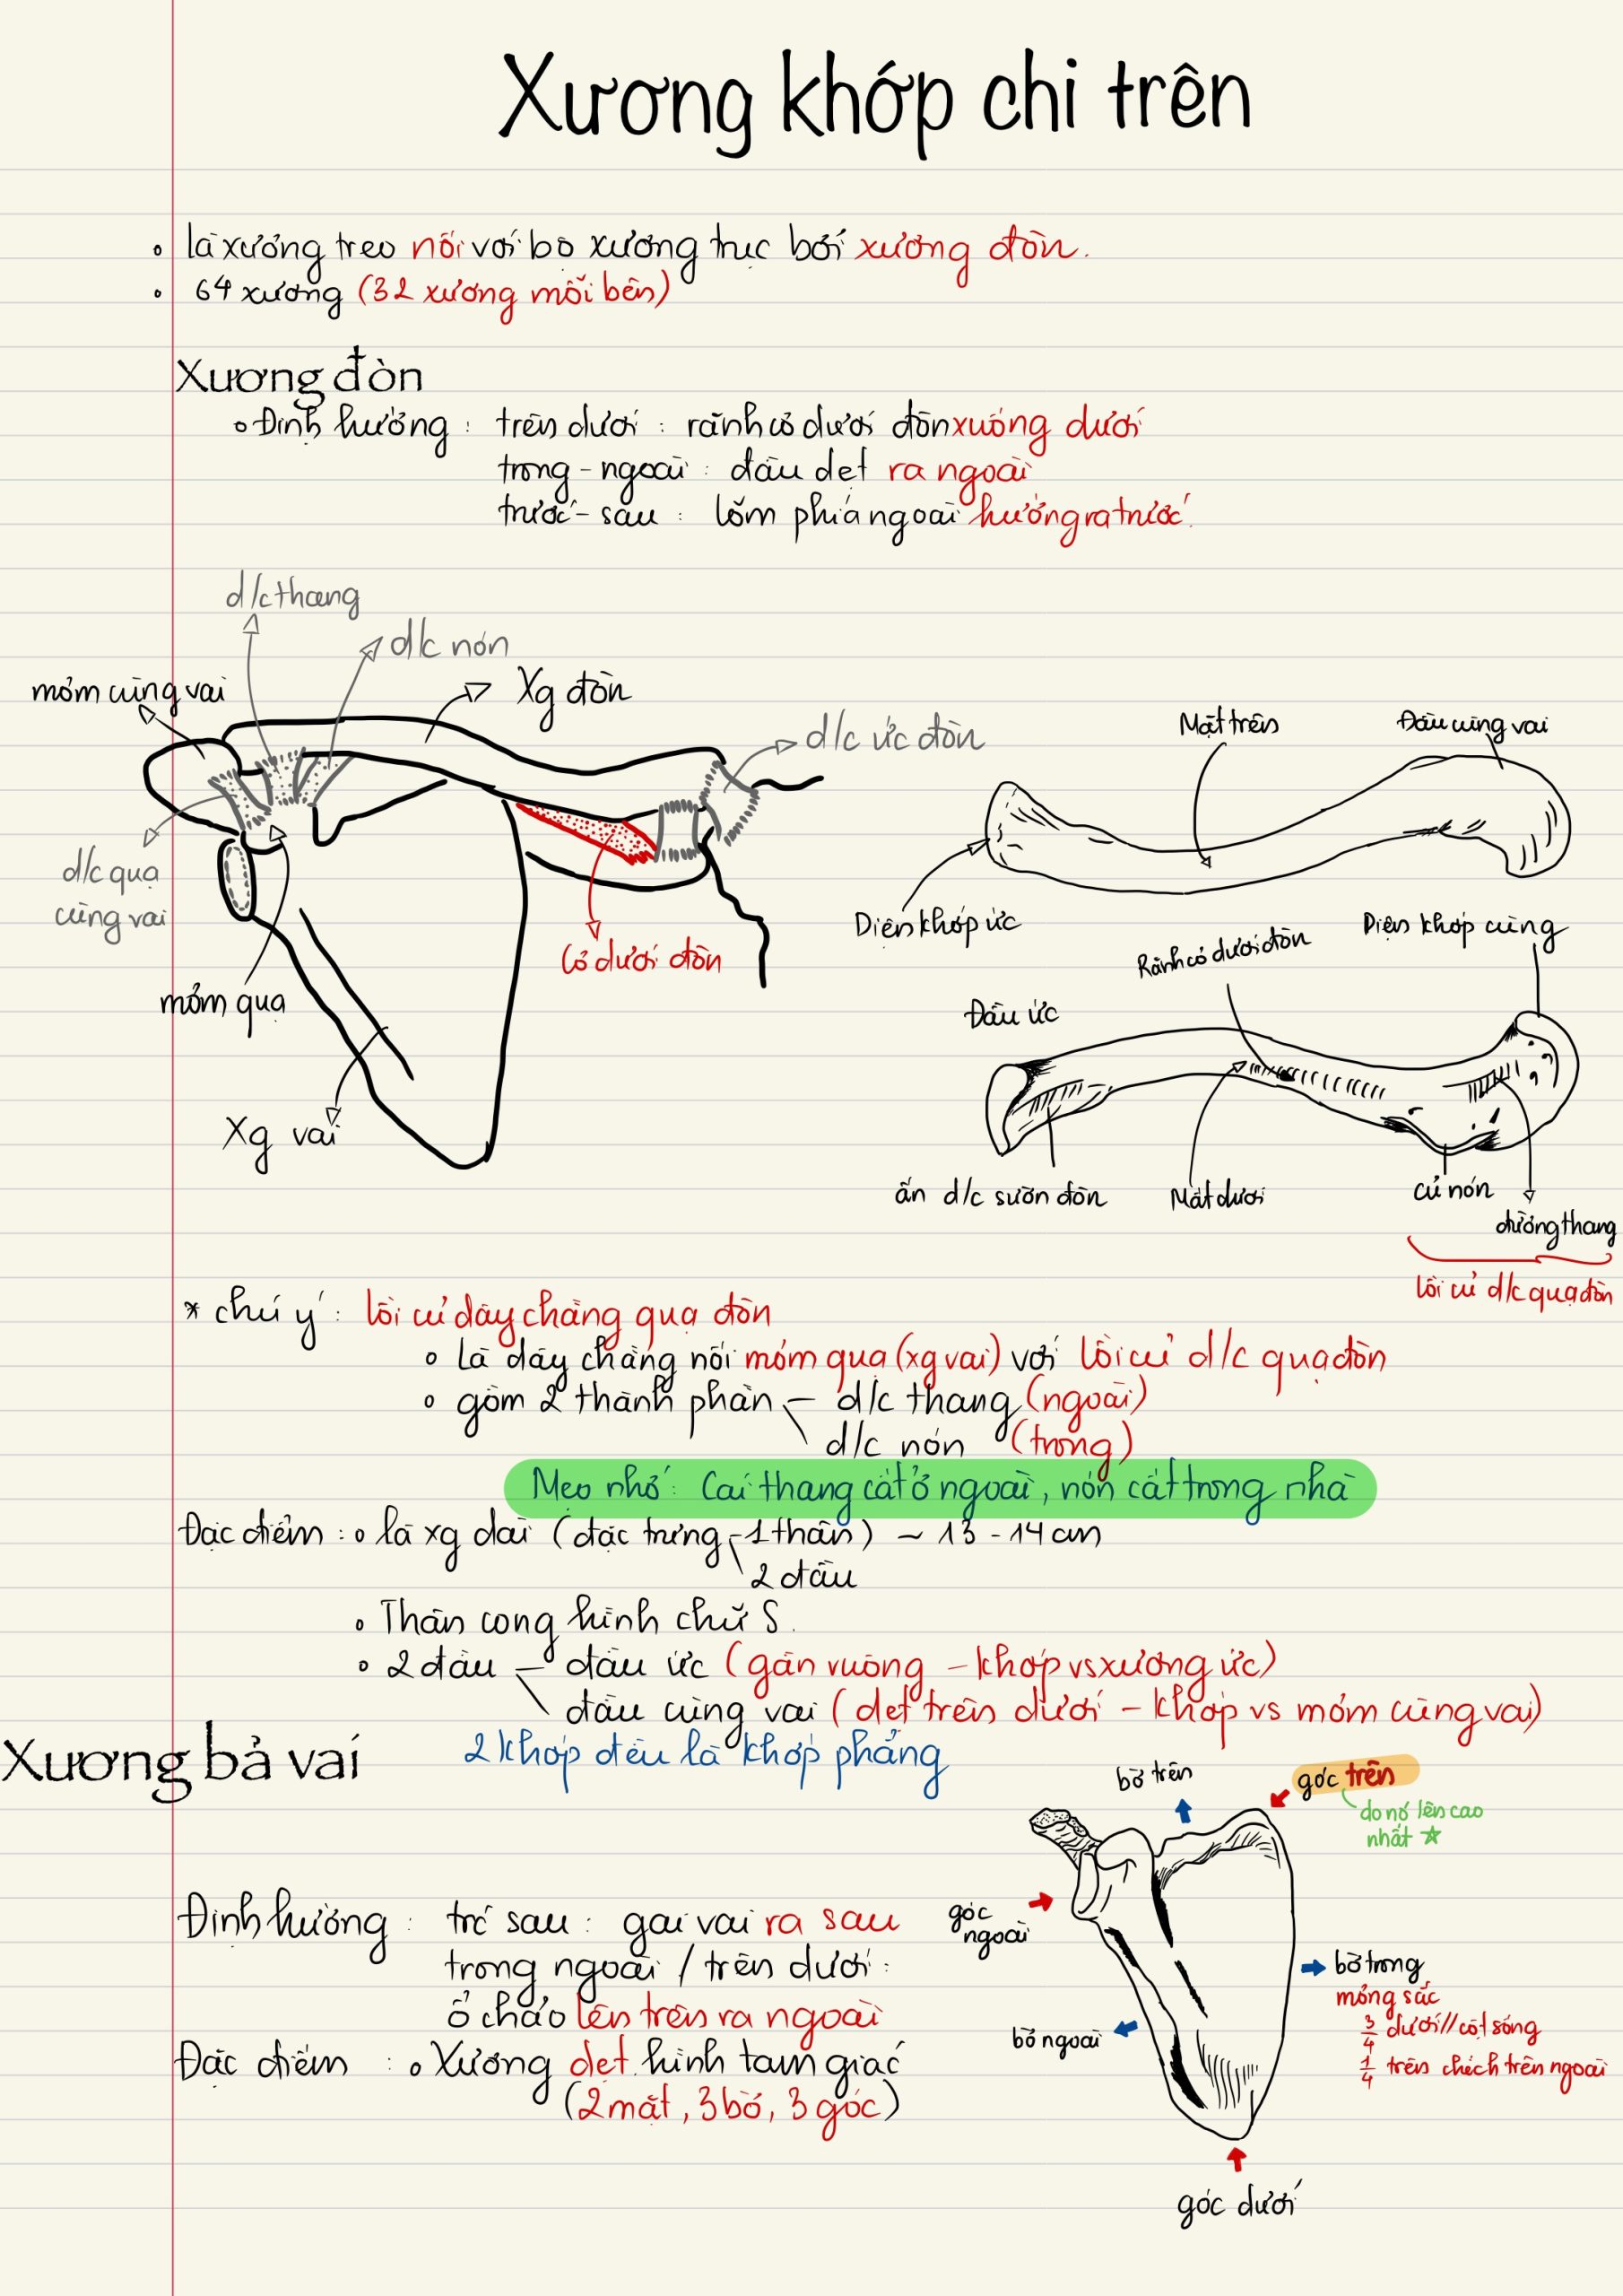 Xương khớp chi trên
là xương treo nối với bộ xương trục bởi xương đòn.
64 xương (32 xương mỗi bên)
Xương đòn
Định hướng: trên dưới: rãnh cơ dưới đòn xuống dưới
trong-ngoài: đầu dẹt ra ngoài
trước-sau: lõm phía ngoài hướng ra trước.
d/c thang
d/c nón
mỏm cùng vai
Xg đòn
d/c ức đòn
d/c quạ
cùng vai
mỏm quạ
Cơ dưới đòn
Xg vai
Mặt trên
Đầu cùng vai
Diện khớp ức
Diện khớp cùng
Rãnh cơ dưới đòn
Đầu ức
ấn d/c sườn đòn
Mặt dưới
củ nón
đường thang
lồi củ d/c quạ đòn
* chú ý: lồi củ dây chằng quạ đòn
Là dây chằng nối mỏm quạ (xg vai) với lồi củ d/c quạ đòn
gồm 2 thành phần - d/c thang (ngoài)
d/c nón (trong)
Mẹo nhớ: Cái thang cất ở ngoài, nón cất trong nhà
Đặc điểm: là xg dài (đặc trưng - 1 thân) ~ 13 - 14 cm
2 đầu
Thân cong hình chữ S.
2 đầu - đầu ức (gần vuông - khớp vs xương ức)
đầu cùng vai (dẹt trên dưới - khớp vs mỏm cùng vai)
2 khớp đều là khớp phẳng
Xương bả vai
bờ trên
góc trên
do nó lên cao
nhất ☆
góc
ngoài
Định hướng: trc sau: gai vai ra sau
trong ngoài / trên dưới:
ổ chảo lên trên ra ngoài
bờ trong
mỏng sắc
3/4 dưới // cột sống
1/4 trên chếch trên ngoài
bờ ngoài
Đặc điểm: Xương dẹt hình tam giác
(2 mặt, 3 bờ, 3 góc)
góc dưới